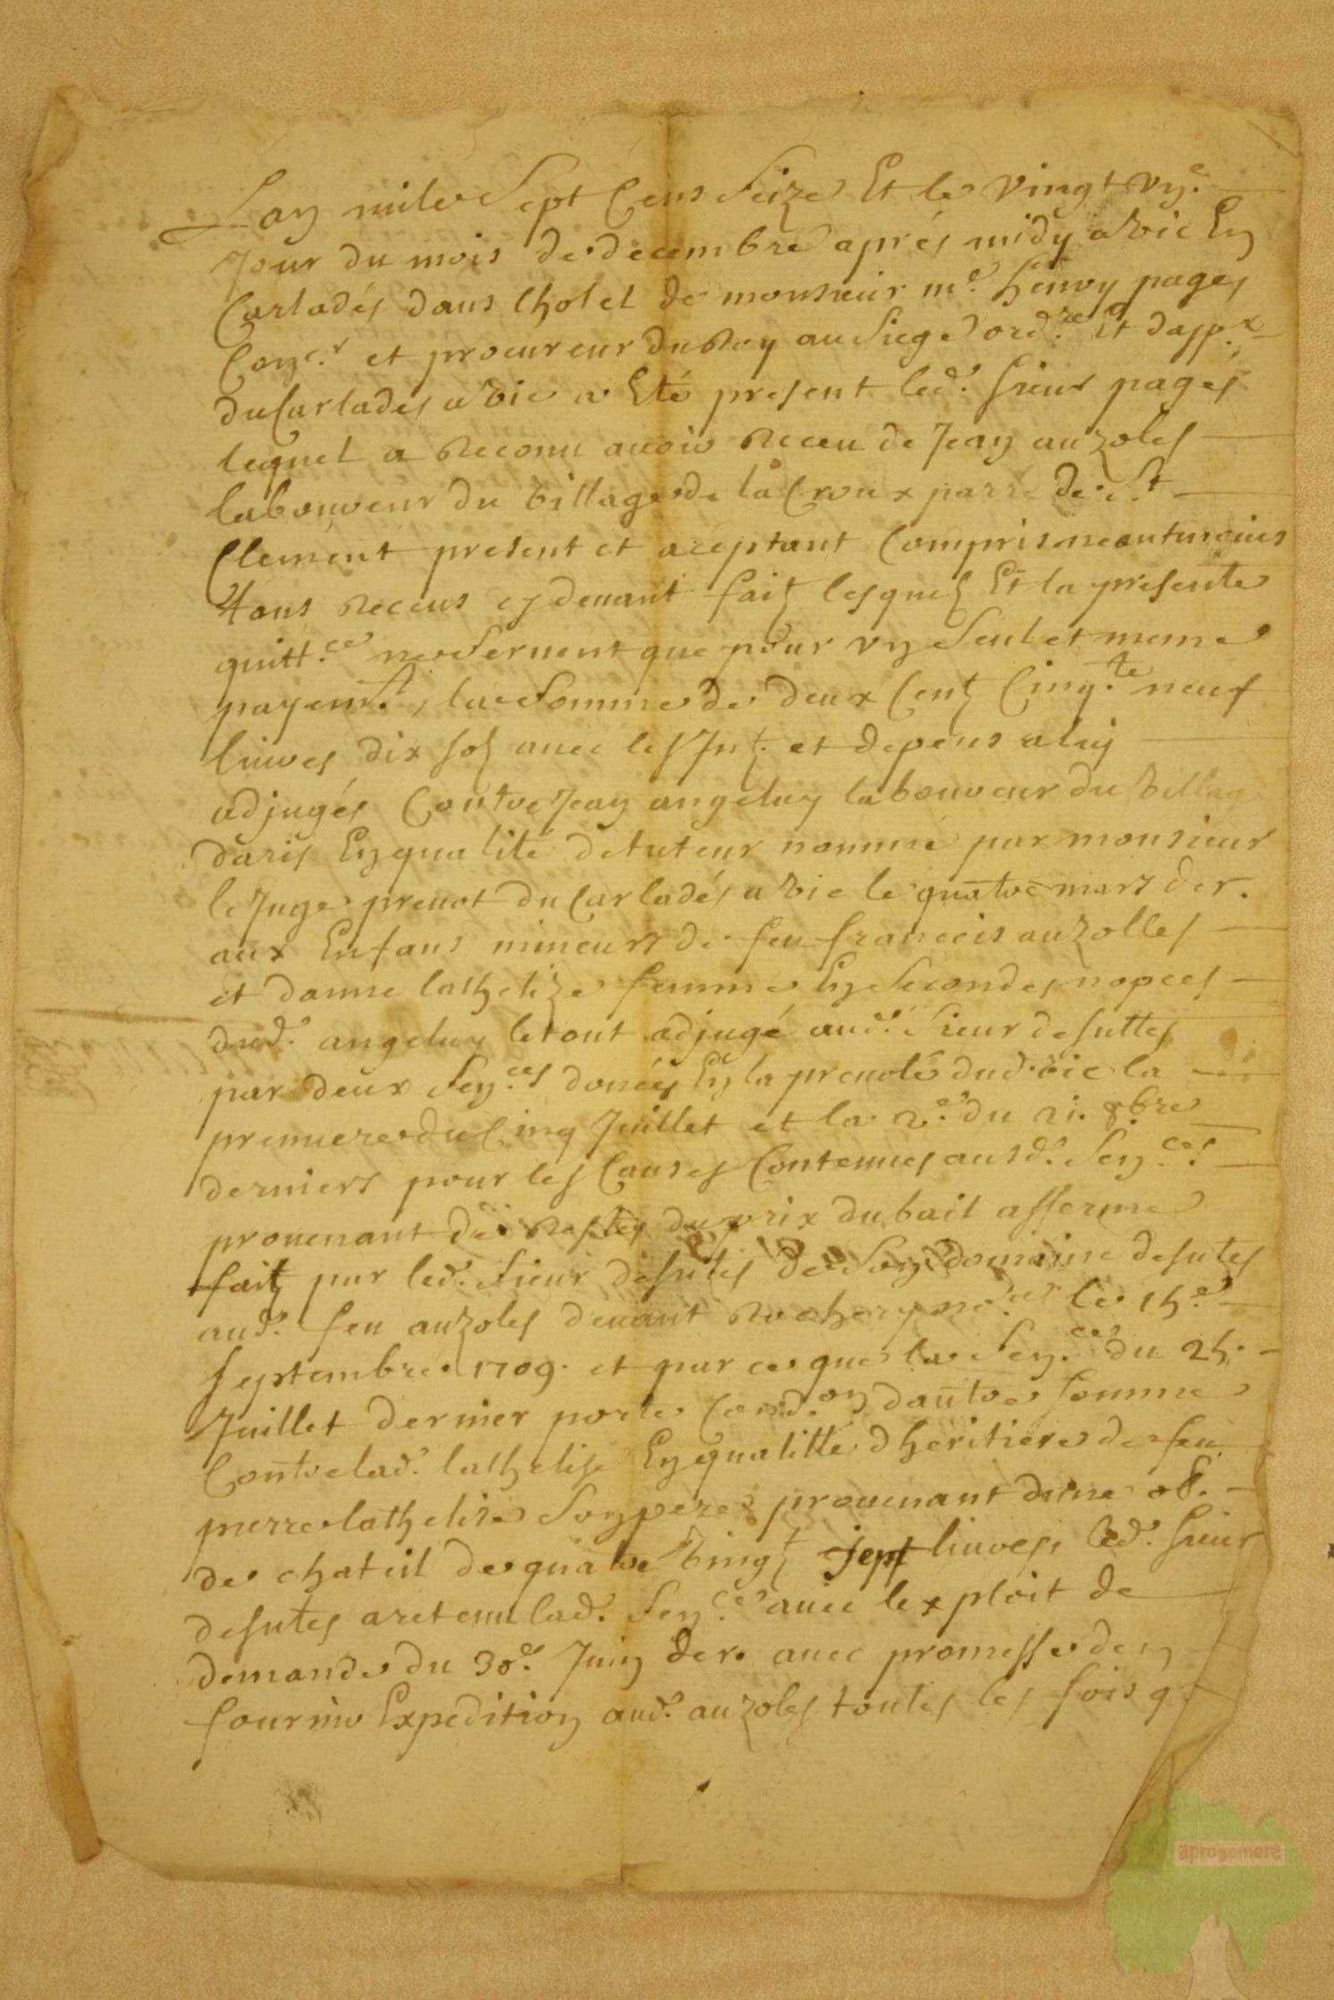 Lan mile Sept Cens Seize Et le Vingt vn.e
Jour du mois de decembre aprés midy a Vic En
Carladés dans lhotel de monsieur m.e henry pages
Con.er et procureur du Roy au Siege dord.re Et dapp.x
du Carladés a Vic a Eté present led. sieur pagés
lequel a Reconu auoir Receu de Jean auzoles
laboureur du Village de la Croux parr.e de S.t
Clement present et aceptant Compris neantmoins
tous Receus cy deuant faitz lesquelz Et la presente
quitt.ce ne Seruent que pour vn Seul et meme
payem.t, la Somme de deux Centz Cinq.te neuf
liures dix solz auec les Int. et depens a luy
adjugés Contre Jean angeluy laboureur du Villag
daris En qualité de tuteur nommé par monsieur
le Juge preuot du Carladés a Vic le quatre mars der.
aux Enfans mineurs de feu francois auzolles
et danne lathelize femme En Secondes nopces
dud. angeluy le tout adjugé aud. Sieur desuttes
par deux Sen.ces donées En la preuoté dud. Vic la
premiere du Cinq Juillet et la 2.e du 21. 8.bre
derniers pour les Causes Contenues ausd. Sen.ces
prouenant de Restes du prix du bail afferme
faitz par led. Sieur desutes de Son domaine desutes
aud. feu auzoles deuant Rochery no.re le 15.e
septembre 1709. et par ce que la Sen.ce du 25.
Juillet dernier porte Cond.on dautre Somme
Contre lad. lathelise En qualitté dheritiere de feu
pierre lathelise Son pere prouenant dune ob.
de chateil de quatre Vingt sept liures, led. sieur
desutes a retenu lad. Sen.ce auec lexploit de
demande du 30.e Juin der. auec promesse den
fournir Expedition aud. auzoles toutes les fois q.
aprogemere